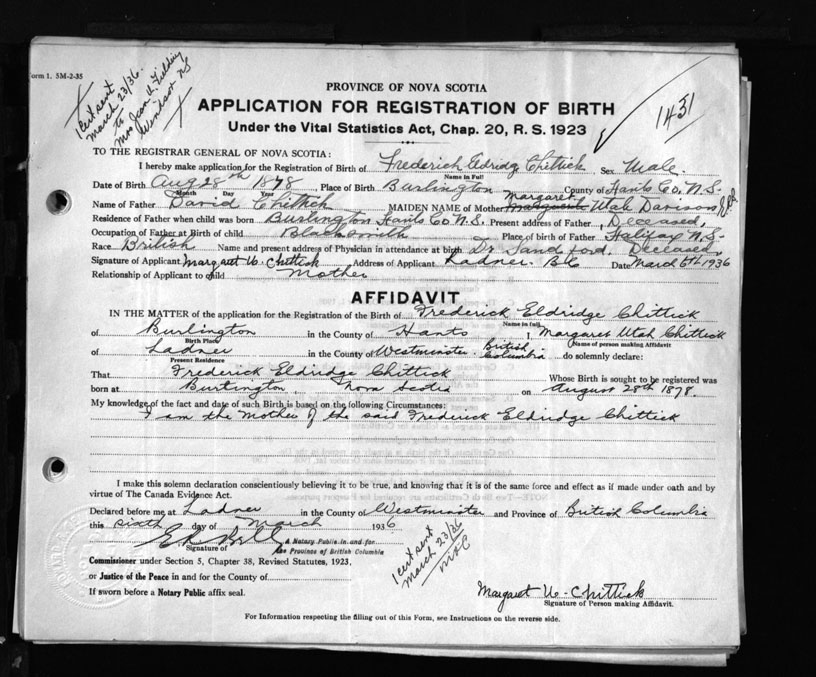 Form 1. 5M-2-35
1 cert sent
March 23/36.
to
Mrs Jean A. Fielding
Windsor NS
PROVINCE OF NOVA SCOTIA
APPLICATION FOR REGISTRATION OF BIRTH
Under the Vital Statistics Act, Chap. 20, R. S. 1923
1431
TO THE REGISTRAR GENERAL OF NOVA SCOTIA:
I hereby make application for the Registration of Birth of Frederich Eldridg Chittick Sex Male.
Name in Full
Date of Birth Aug 28th 1878, Place of Birth Burlington County of Hants Co. N.S.
Month Day Year
Name of Father David Chittick MAIDEN NAME of Mother Margaret Utah Davison
Residence of Father when child was born Burlington Hants Co N.S. Present address of Father, Deceased,
Occupation of Father at Birth of child Blacksmith Place of birth of Father Halifax N.S.
Race British Name and present address of Physician in attendance at birth Dr. Sandford, Deceased,
Signature of Applicant Margaret U. Chittick Address of Applicant Ladner. B.C Date March 6th 1936
Relationship of Applicant to child Mother
AFFIDAVIT
IN THE MATTER of the application for the Registration of the Birth of Frederick Eldridge Chittick
Name in full
of Burlington in the County of Hants I, Margaret Utah Chittick
Birth Place Name of person making Affidavit
of Ladner in the County of Westminster. British Columbia do solemnly declare:
Present Residence
That Frederick Eldridge Chittick Whose Birth is sought to be registered was
born at Burlington, Nova Scotia on August 28th 1878.
My knowledge of the fact and date of such Birth is based on the following Circumstances:
I am the Mother of the said Frederick Eldridge Chittick
I make this solemn declaration conscientiously believing it to be true, and knowing that it is of the same force and effect as if made under oath and by
virtue of The Canada Evidence Act.
Declared before me at Ladner in the County of Westminster and Province of British Columbia
this sixth day of March 1936
Signature of
A Notary Public in and for
the Province of British Columbia
Commissioner under Section 5, Chapter 38, Revised Statutes, 1923,
or Justice of the Peace in and for the County of
If sworn before a Notary Public affix seal.
1 cert sent
March 23/36
Margaret U. Chittick
Signature of Person making Affidavit.
For Information respecting the filling out of this Form, see Instructions on the reverse side.